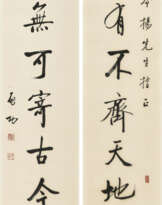 楊先生指正
有不齊天地
無可寄古今
啓功